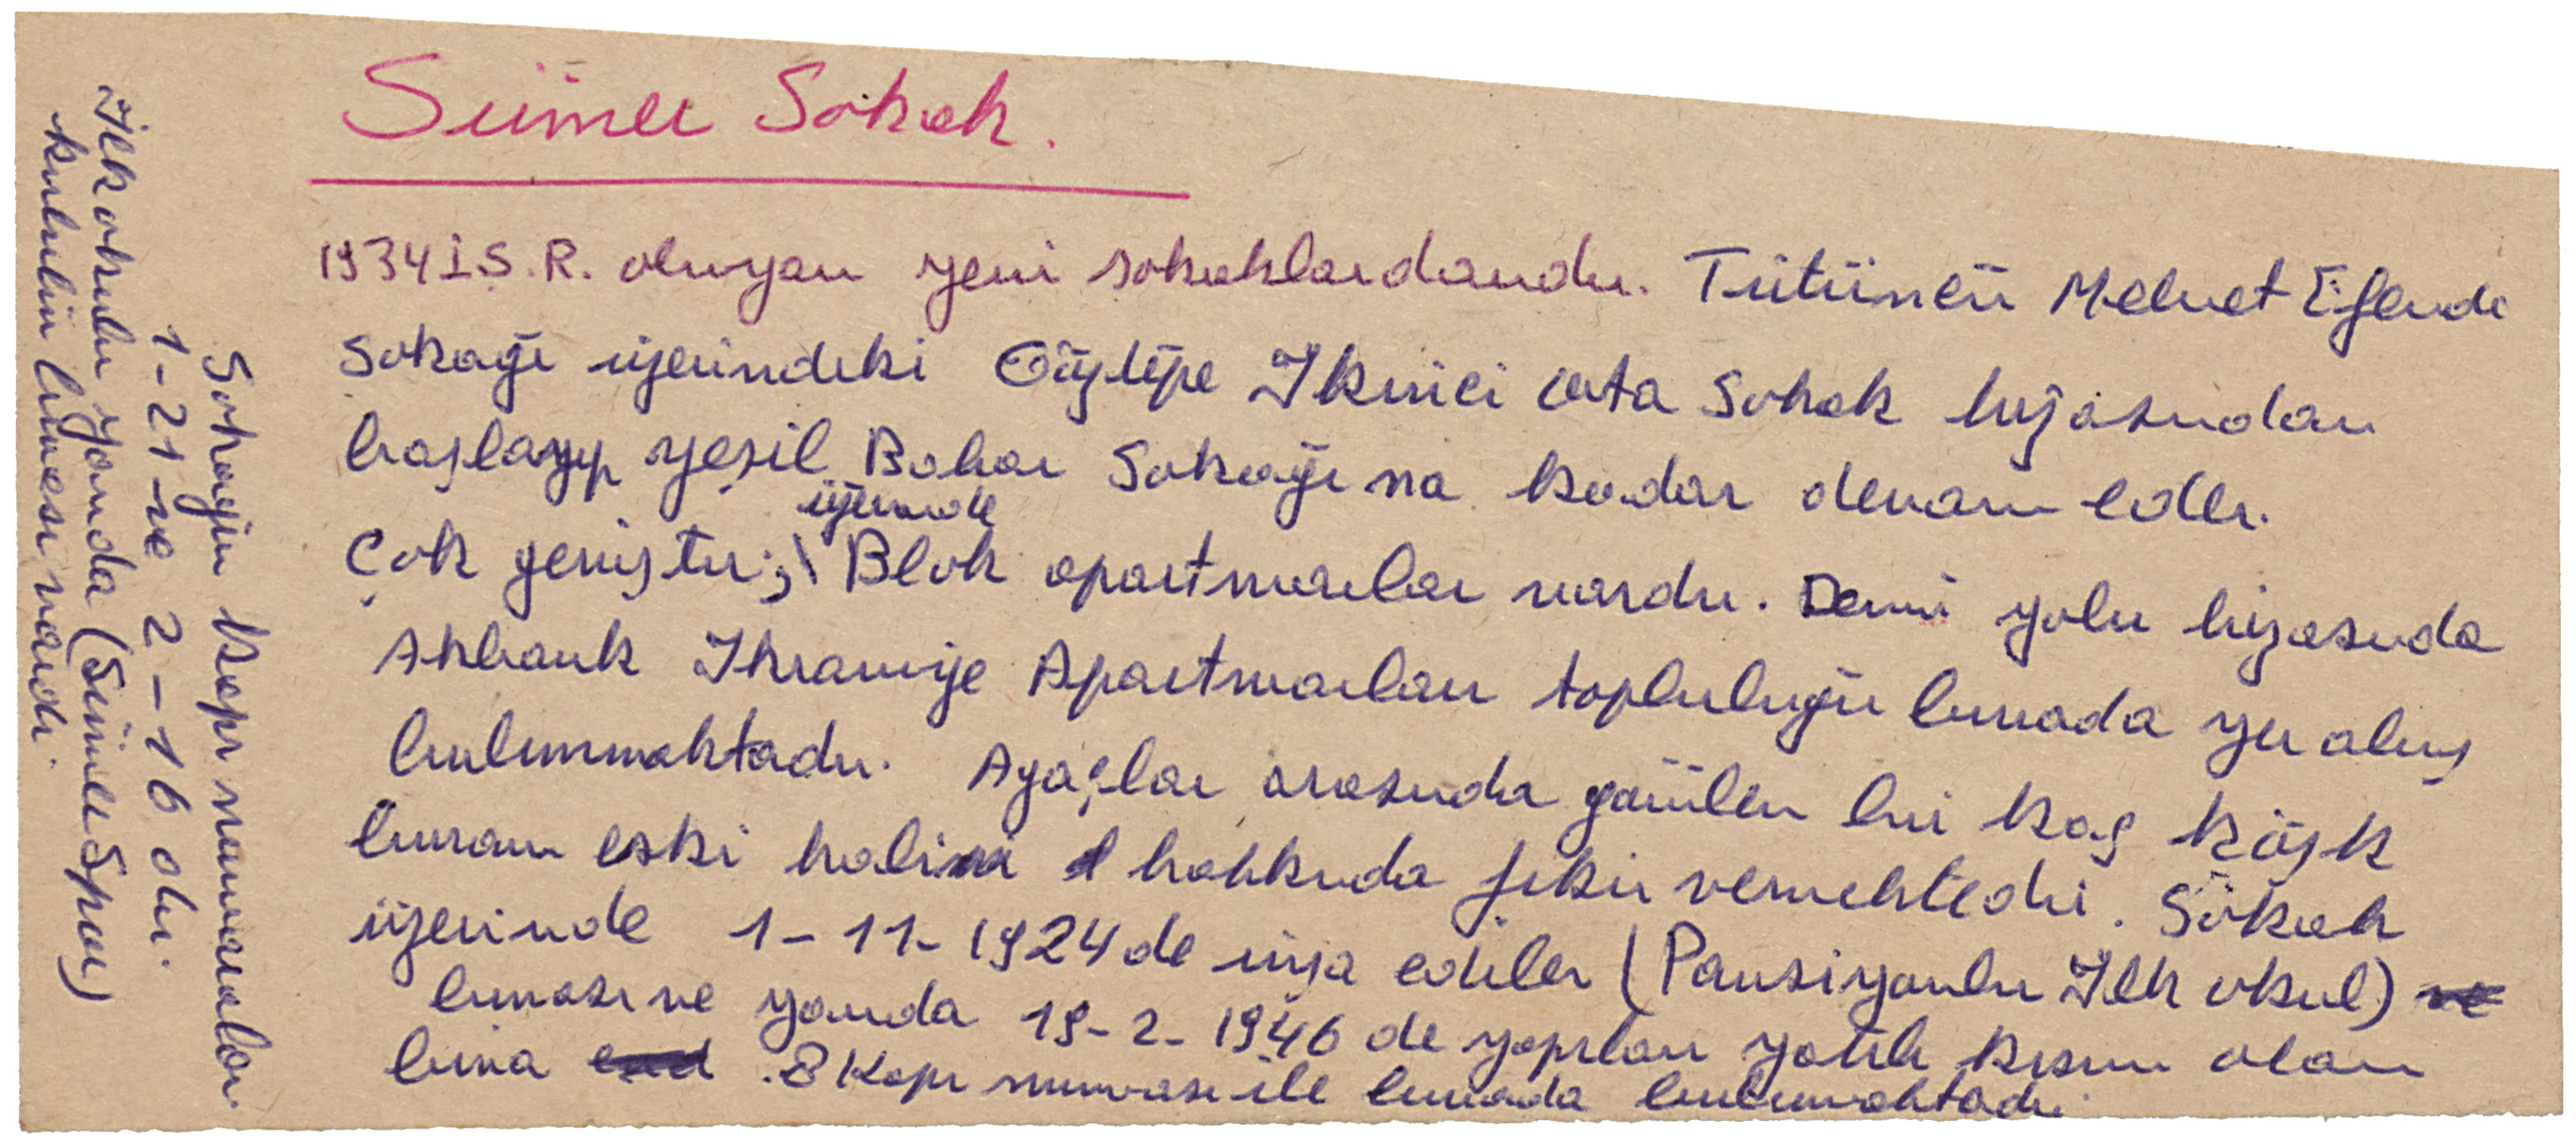 Sümer Sokak.
1934 İ.S.R. olmıyan yeni sokaklardandır. Tütüncü Mehmet Efendi
Sokağı üzerindeki Göztepe İkinci Orta Sokak hizasından
başlayıp yeşil Bahar Sokağına kadar devam eder.
Çok geniştir; üzerinde Blok apartmanlar vardır. Demir yolu hizasında
Akbank İkramiye Apartmanları topluluğu burada yer almış
bulunmaktadır. Ağaçlar arasında görülen bir kaç köşk
buranın eski hali hakkında fikir vermektedir. Sokak
üzerinde 1-11-1924 de inşa edilen (Pansiyonlu İlk okul)
binası ve yanında 19-2-1946 de yapılan yatılı kısım olan
bina 8 Kapı numarası ile burada bulunmaktadır
Sokağın kapı numaraları
1-21 ve 2-16 dır.
İlk okulu yanında (Sümer Spor)
kulübün binası vardır.